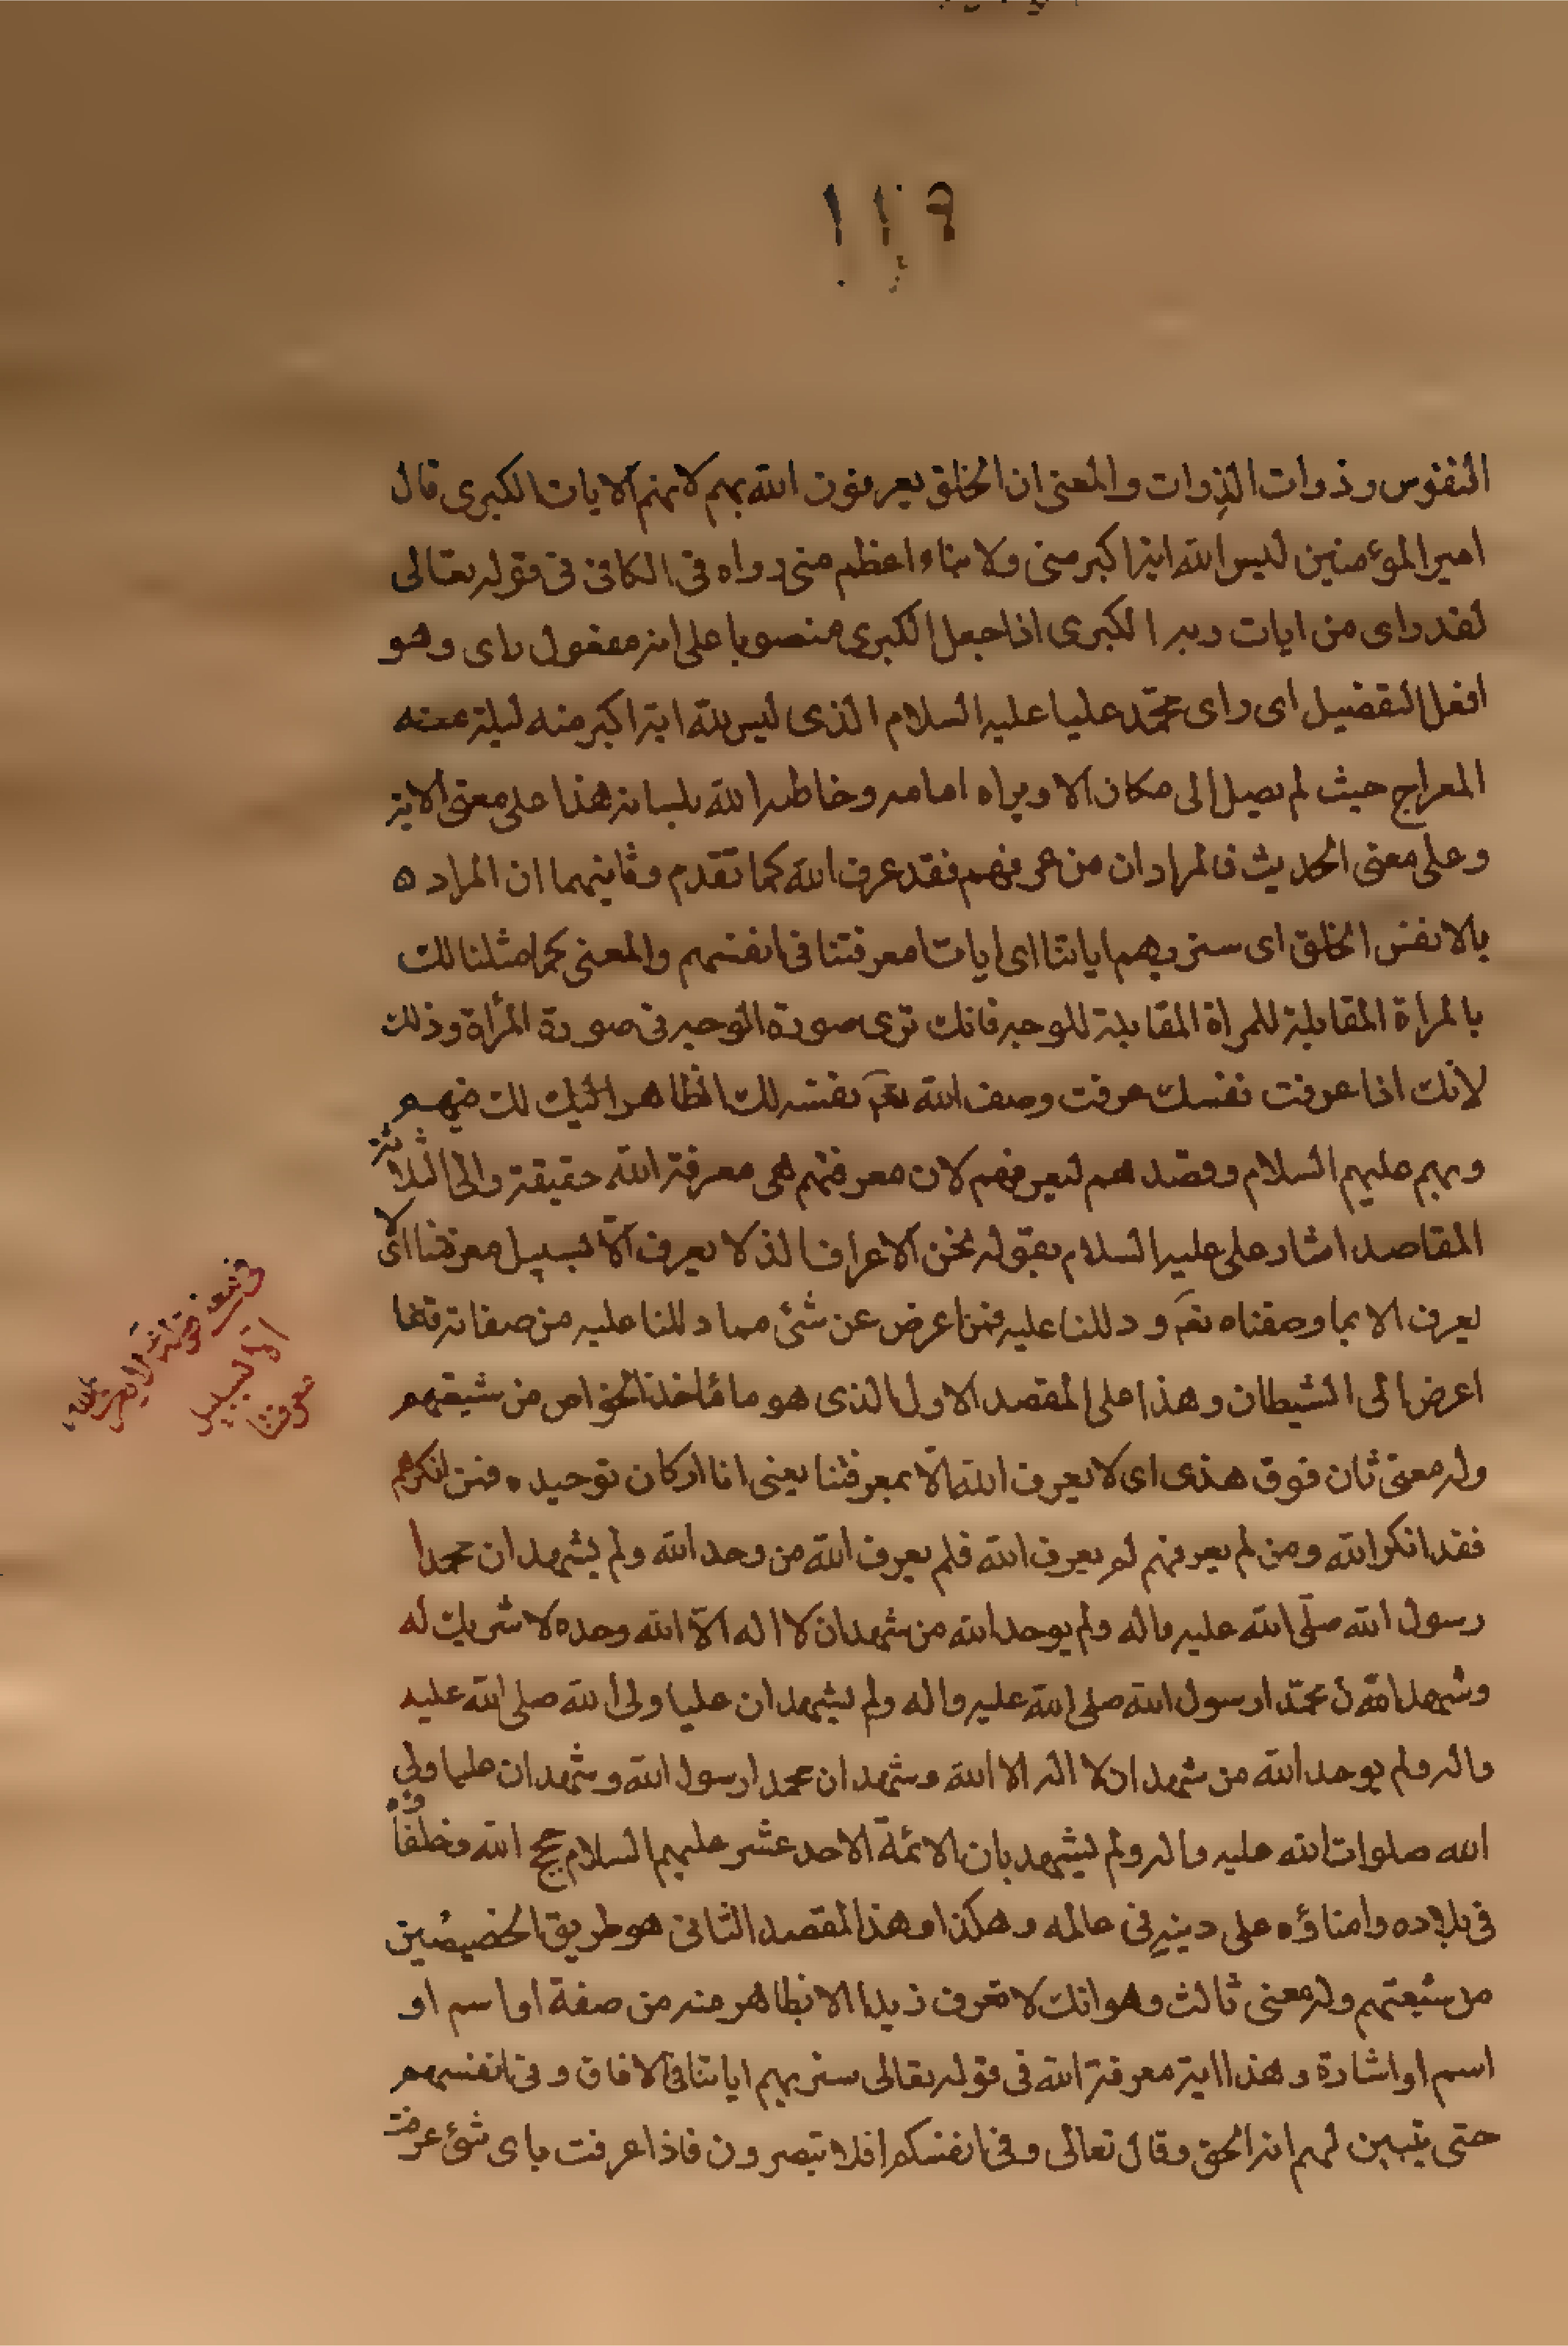 ١١٩
النفوس وذوات الذوات والمعنى ان الخلق يعرفون الله بهم لانهم الايات الكبرى قال
امير المؤمنين ليس لله اية اكبر منى ولا نباء اعظم منى رواه فى الكافى فى قوله تعالى
لقد راى من ايات ربه الكبرى اذا جعل الكبرى منصوبا على انه مفعول راى وهو
افعل التفضيل اى راى محمّد عليا عليه السلام الذى ليس لله اية اكبر منه ليلة
المعراج حيث لم يصل الى مكان الا ويراه امامه وخاطبه الله بلسانه هذا على معنى الاية
وعلى معنى الحديث فالمراد ان من عرفهم فقد عرف الله كما تقدم وثانيهما ان المراد ه
بالانفس الخلق اى سنريهم اياتنا اى ايات معرفتنا فى انفسهم والمعنى كما مثلنا لك
بالمراة المقابلة للمراة المقابلة للوجه فانك ترى صورة الوجه فى صورة المرأة وذلك
لانك اذا عرفت نفسك عرفت وصف الله نفسه لك الظاهر اليك لك فيهم
وبهم عليهم السلام وقصدهم لتعرفهم لان معرفتهم هى معرفة الله حقيقة والى الثلاثة
المقاصد اشار على عليه السلام بقوله نحن الاعراف الذ لا يعرف الّا بسبيل معرفتنا اى لا
يعرف الا بما وصفناه ودللنا عليه فمن اعرض عن شئ مما دللنا عليه من صفاته فقد
اعرض الى الشيطان وهذا على المقصد الاول الذى هو مأخذ الخواص من شيعتهم
وله معنى ثان فوق هذى اى لا يعرف الله الّا بمعرفتنا يعنى انا اركان توحيده فمن انكرهم
فقد انكر الله ومن لم يعرفهم لم يعرف الله فلم يعرف الله من وحد الله ولم يشهد ان محمدا
رسول الله صلّى الله عليه واله ولم يوحد الله من شهد ان لا اله الّا الله وحده لا شريك له
وشهد ان محمّدا رسول الله صلى الله عليه واله ولم يشهد ان عليا ولى الله صلى الله عليه
واله ولم يوحد الله من شهد ان لا اله الا الله وشهد ان محمدا رسول الله وشهد ان عليا ولى
الله صلوات الله عليه واله ولم يشهد بان الائمة الاحد عشر عليهم السلام حجج الله وخلفاؤه
فى بلاده وامناؤه على دينه فى عالمه وهكذا وهذا المقصد الثانى هو طريق الخصيصين
من شيعتهم وله معنى ثالث وهو انك لا تعرف زيدا الا بظاهر منه من صفة او اسم او
اسم او اشارة وهذا اية معرفة الله فى قوله تعالى سنريهم اياتنا فى الافاق وفى انفسهم
حتى يتبين لهم انه الحق وقال تعالى وفى انفسكم افلا تبصرون فاذا عرفت باى شئ عرفت
الّا بسبيل
معرفتنا